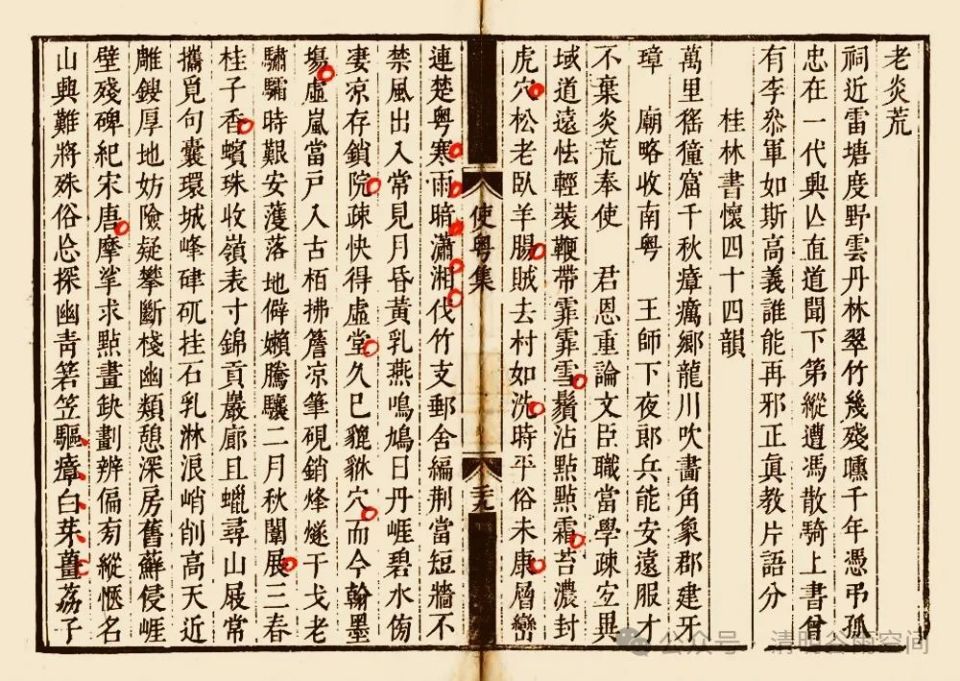 老炎荒
祠近雷塘度野雲丹林翠竹幾殘曛千年憑弔孤
忠在一代興亾直道聞下第縱遭馮散騎上書曾
有李叅軍如斯高義誰能再邪正眞教片語分
桂林書懷四十四韻
萬里猺獞窟千秋瘴癘鄉龍川吹畫角象郡建牙
璋　廟略收南粤　王師下夜郎兵能安遠服才
不棄炎荒奉使　君恩重論文臣職當學疎宐異
域道遠怯輕裝鞭帶霏霏雪鬚沾點點霜苔濃封
虎穴松老臥羊腸賊去村如洗時平俗未康層巒
使粤集
連楚粤寒雨暗瀟湘伐竹支郵舍編荆當短牆不
禁風出入常見月昏黃乳燕鳴鳩日丹崕碧水傍
凄凉存鎖院疎快得虛堂久巳貔貅穴而今翰墨
塲虛嵐當戶入古栢拂簷凉筆硯銷烽燧干戈老
驌驦時艱安濩落地僻嬾騰驤二月秋闈展三春
桂子香蠙珠收嶺表寸錦貢巖廊且蠟尋山屐常
攜覓句囊環城峰硉矹挂石乳淋浪峭削高天近
雕鎪厚地妨險疑攀斷棧幽類憩深房舊蘚侵崕
壁殘碑紀宋唐摩挲求點畫缺劃辨偏旁縱愜名
山興難將殊俗忘探幽靑箬笠驅瘴白芽薑荔子
公众号 · 清明谷雨空间